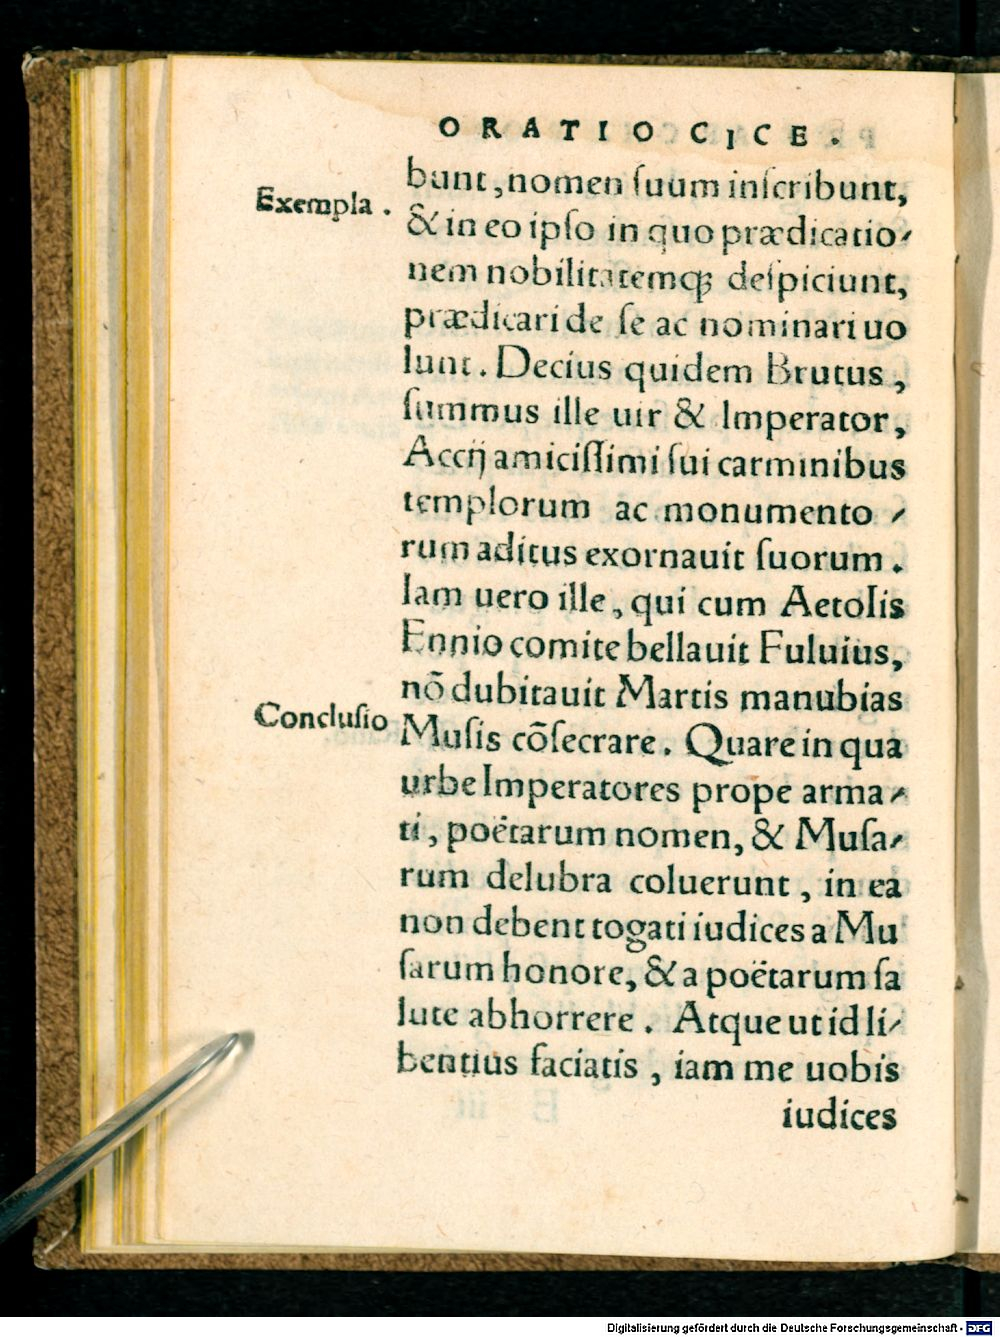 ORATIO CICE.
bunt, nomen ſuum inſcribunt,
Exempla.
& in eo ipſo in quo prædicatio-
nem nobilitatemqꝫ deſpiciunt,
prædicari de ſe ac nominari uo
lunt. Decius quidem Brutus,
ſummus ille uir & Imperator,
Accij amiciſſimi ſui carminibus
templorum ac monumento-
rum aditus exornauit ſuorum.
Iam uero ille, qui cum Aetolis
Ennio comite bellauit Fuluius,
nõ dubitauit Martis manubias
Concluſio
Muſis cõſecrare. Quare in qua
urbe Imperatores prope arma-
ti, poëtarum nomen, & Muſa-
rum delubra coluerunt, in ea
non debent togati iudices a Mu
ſarum honore, & a poëtarum ſa
lute abhorrere. Atque ut id li-
bentius faciatis, iam me uobis
iudices
Digitalisierung gefördert durch die Deutsche Forschungsgemeinschaft - DFG